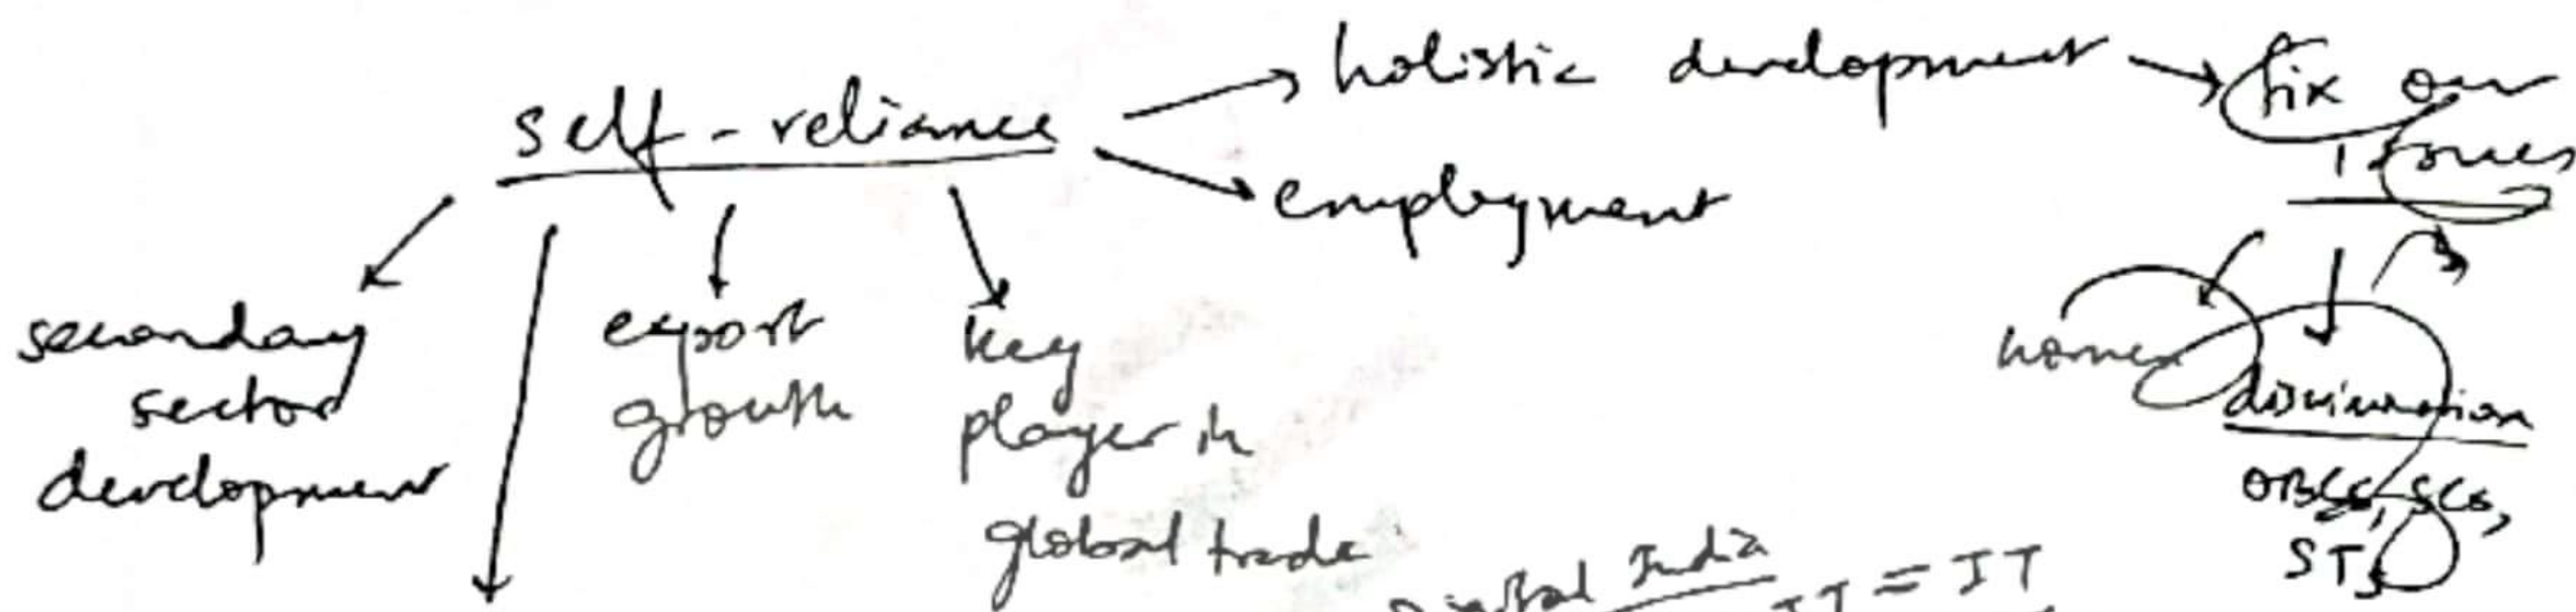 holistic development
fix our
self-reliance
issues
employment
secondary
sector
development
export
growth
key
player in
global trade
women
discrimination
OBCs, SCs,
STs
Digital India
IT = IT